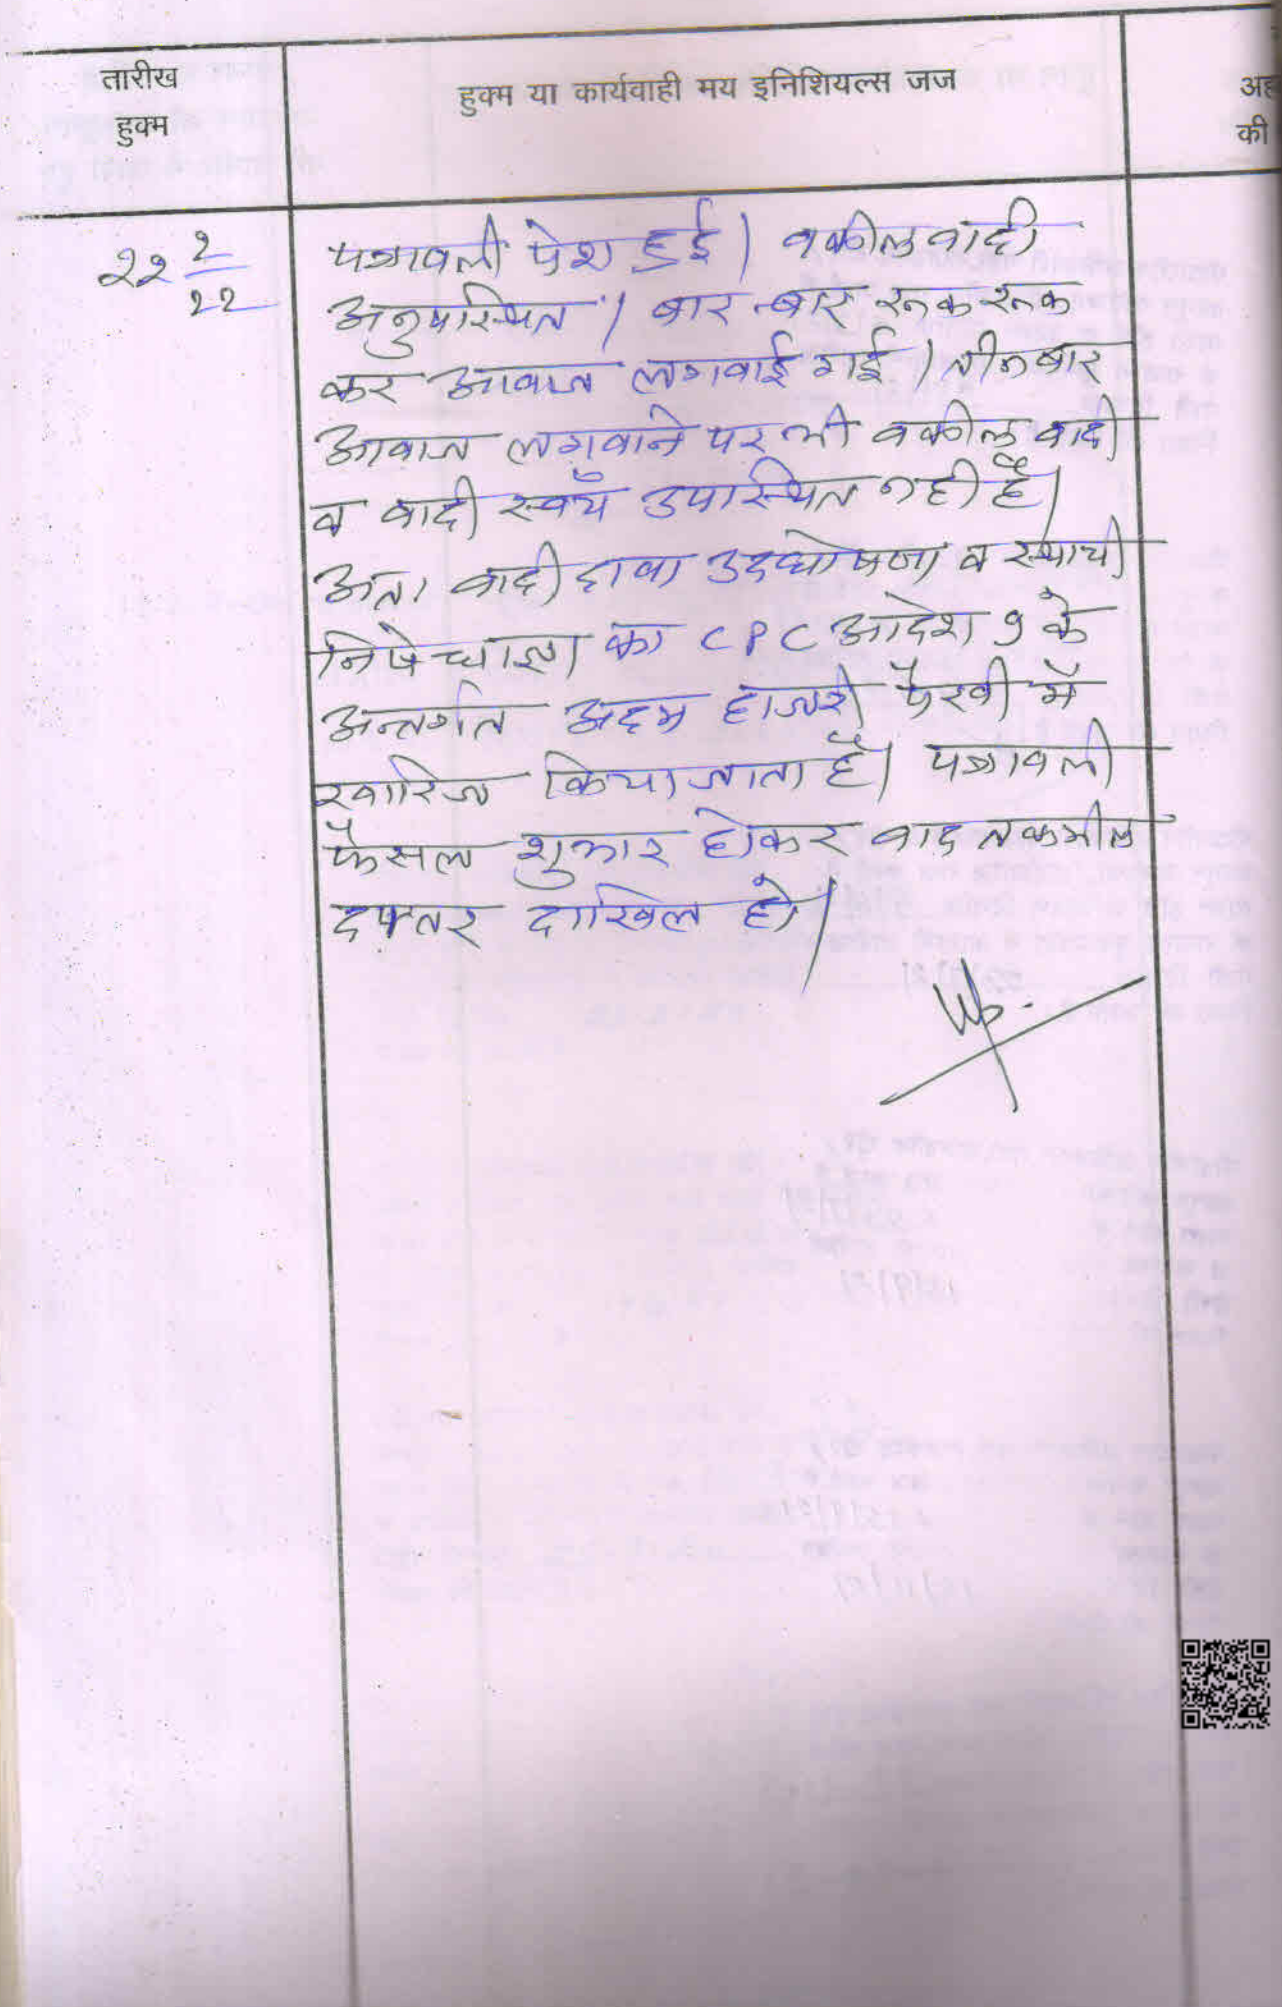 तारीख
हुक्म
हुक्म या कार्यवाही मय इनिशियल्स जज
अह
की
22 2/22
पत्रावली पेश हुई। वकील वादी
अनुपस्थित। बार-बार रूक रूक
कर आवाज लगवाई गई। तीन बार
आवाज लगवाने पर भी वकील वादी
व वादी स्वयँ उपास्थित नही है।
अतः वादी दावा उदघोषणा व स्थायी
निषेधाज्ञा का CPC आदेश 9 के
अन्तर्गत अदम हाजरी पैरवी में
खारिज किया जाता है। पत्रावली
फैसल शुमार होकर बाद तकमील
दफ्तर दाखिल हो।